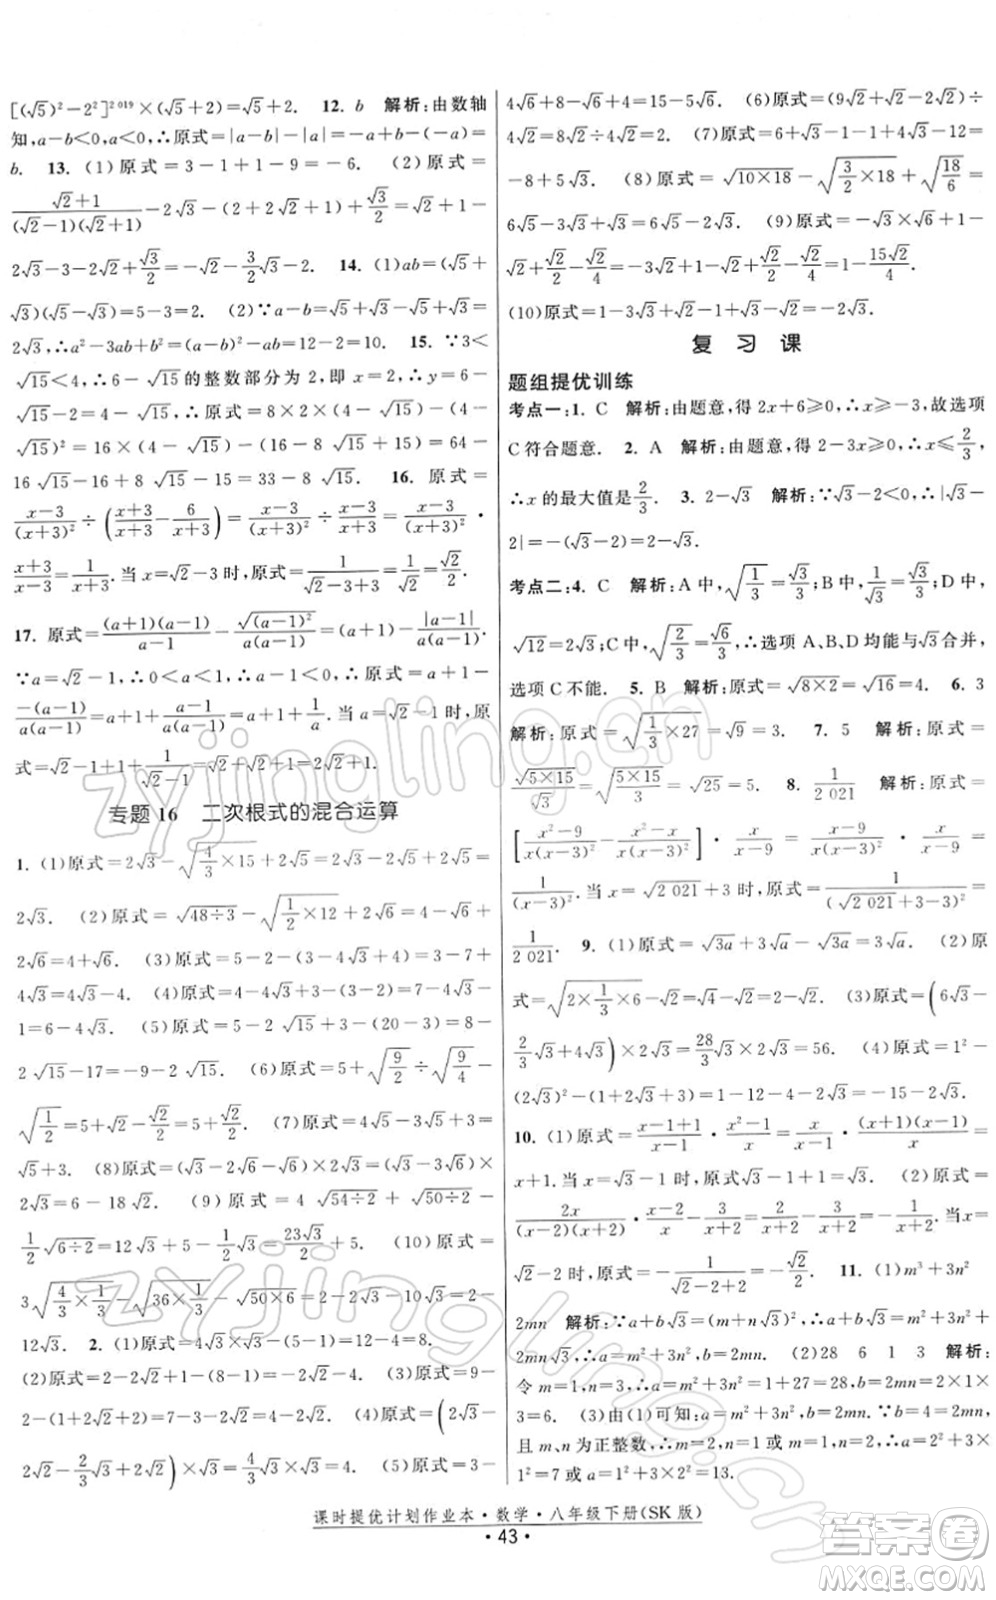 [(√5)²-2²]²⁰¹⁹×(√5+2)=√5+2.  12. b  解析:由数轴
知,a-b<0,a<0,∴原式=|a-b|-|a|=-a+b-(-a)=
b.  13. (1)原式=3-1+1-9=-6.  (2)原式=
(√2+1)/((√2-1)(√2+1))-2√3-(2+2√2+1)+√3/2=√2+1-
2√3-3-2√2+√3/2=-√2-3/2√3-2.  14. (1)ab=(√5+
√3)(√5-√3)=5-3=2.  (2)∵a-b=√5+√3-√5+√3=
2√3,∴a²-3ab+b²=(a-b)²-ab=12-2=10.  15. ∵3<
√15<4,∴√15的整数部分为2,即x=2,∴y=6-
√15-2=4-√15,∴原式=8×2×(4-√15)-(4-
√15)²=16×(4-√15)-(4-√15)²=64-
16√15-16+8√15-15=33-8√15.  16. 原式=
(x-3)/(x+3)²÷((x+3)/(x+3)-6/(x+3))=(x-3)/(x+3)²÷(x-3)/(x+3)=(x-3)/(x+3)²·
(x+3)/(x-3)=1/(x+3).当x=√2-3时,原式=1/(√2-3+3)=1/√2=√2/2.
17. 原式=(a+1)(a-1)/(a-1)-√(a-1)²/(a(a-1))=(a+1)-|a-1|/(a(a-1)).
∵a=√2-1,∴0<a<1,∴a-1<0,∴原式=a+1-
-(a-1)/(a(a-1))=a+1+(a-1)/(a(a-1))=a+1+1/a.当a=√2-1时,原
式=√2-1+1+1/(√2-1)=√2+√2+1=2√2+1.
专题16  二次根式的混合运算
1. (1)原式=2√3-√(4/3×15)+2√5=2√3-2√5+2√5=
2√3.  (2)原式=√(48÷3)-√(1/2×12)+2√6=4-√6+
2√6=4+√6.  (3)原式=5-2-(3-4√3+4)=3-7+
4√3=4√3-4.  (4)原式=4-4√3+3-(3-2)=7-4√3-
1=6-4√3.  (5)原式=5-2√15+3-(20-3)=8-
2√15-17=-9-2√15.  (6)原式=5+√(9/2)÷√9-
√(1/2)=5+√2/2-√2/2=5+√2/2.  (7)原式=4√5-√5+3=
√5+3.  (8)原式=(√3-2√6-√6)×2√3=(√3-3√6)×
2√3=6-18√2.  (9)原式=4√(54÷2)+√(50÷2)-
1/2√(6÷2)=12√3+5-1/2√3=23√3/2+5.  (10)原式=
3√(4/3×1/3)-√(36×1/3)-√(50×6)=2-2√3-10√3=2-
12√3.  2. (1)原式=4√3×√3-12÷4=12-4=8.
(2)原式=2√2+2-√2-1=√2+1.  (3)原式=9-
2-(1+2√2+2)=7-3-2√2=4-2√2.  (4)原式=(2√3-
2√2-2/3√3+2√2)×√3=4/3√3×√3=4.  (5)原式=3-
4√6+8-√6+4=15-5√6.  (6)原式=(9√2+√2-2√2)÷
4√2=8√2÷4√2=2.  (7)原式=6√3-1-1+4√3-12=
-8+5√3.  (8)原式=√(10×18)-√(3/2×18)+√(18/6)=
6√5-3√3+√3=6√5-2√3.  (9)原式=-√3×√6+1-
√2+√2/4=-3√2+1-√2+√2/4=1-15√2/4.
(10)原式=1-3√3+2√2-1+√3-√2=√2-2√3.
复习课
题组提优训练
考点一:1. C  解析:由题意,得2x+6≥0,∴x≥-3,故选项
C符合题意.  2. A  解析:由题意,得2-3x≥0,∴x≤2/3,
∴x的最大值是2/3.  3. 2-√3  解析:∵√3-2<0,∴|√3-
2|=-(√3-2)=2-√3.
考点二:4. C  解析:A中,√(1/3)=√3/3;B中,1/√3=√3/3;D中,
√12=2√3;C中,√(2/3)=√6/3;∴选项A、B、D均能与√3合并,
选项C不能.  5. B  解析:原式=√(8×2)=√16=4.  6. 3
解析:原式=√(1/3×27)=√9=3.  7. 5  解析:原式=
√(5×15)/√3=√(5×15/3)=√25=5.  8. 1/2 021  解析:原式=
[(x²-9)/(x(x-3)²)-(x²-x)/(x(x-3)²)]·x/(x-9)=(x-9)/(x(x-3)²)·x/(x-9)=
1/(x-3)².当x=√2 021+3时,原式=1/(√2 021+3-3)²=
1/2 021.  9. (1)原式=√3a+3√3a-√3a=3√3a.  (2)原
式=√(2×1/3×6)-√2=√4-√2=2-√2.  (3)原式=(6√3-
2/3√3+4√3)×2√3=28/3√3×2√3=56.  (4)原式=1²-
(2√3)²-(2-2√2+1)=1-12-4+2√2=-15-2√3.
10. (1)原式=(x-1+1)/(x-1)·(x²-1)/x=x/(x-1)·(x+1)(x-1)/x=
x+1.当x=√3-1时,原式=√3-1+1=√3.  (2)原式=
2x/((x-2)(x+2))·(x-2)/x-3/(x+2)=2/(x+2)-3/(x+2)=-1/(x+2).当x=
√2-2时,原式=-1/(√2-2+2)=-√2/2.  11. (1)m²+3n²
2mn  解析:∵a+b√3=(m+n√3)²,∴a+b√3=m²+3n²+
2mn√3,∴a=m²+3n²,b=2mn.  (2)28  6  1  3  解析:
令m=1,n=3,∴a=m²+3n²=1+27=28,b=2mn=2×1
×3=6.  (3)由(1)可知:a=m²+3n²,b=2mn,∵b=4=2mn,
且m、n为正整数,∴m=2,n=1或m=1,n=2,∴a=2²+3×
1²=7或a=1²+3×2²=13.
课时提优计划作业本·数学·八年级下册(SK版)
·43·
zyjingling.cn
zyjingling.cn
答案圈
MXQE.COM